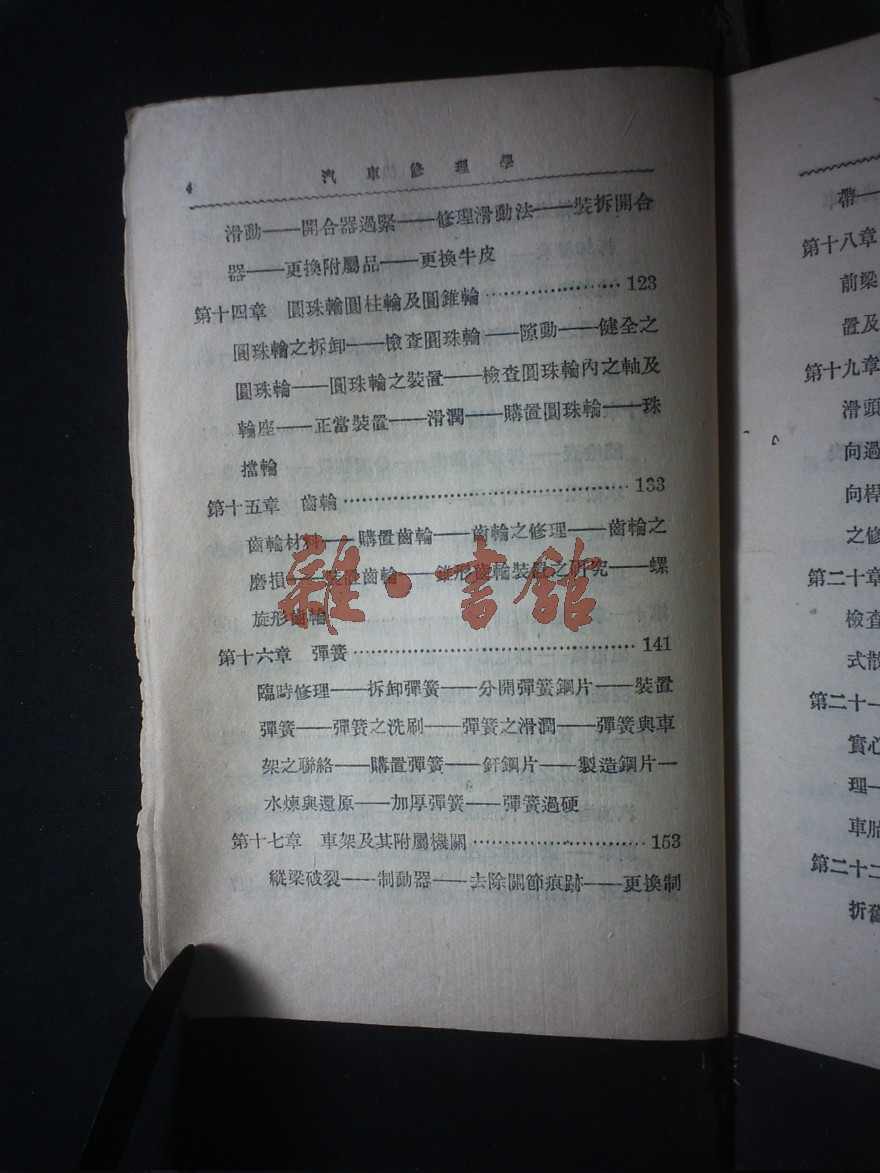 4
汽車修理學
滑動——開合器過緊——修理滑動法——裝拆開合
器——更換附屬品——更換牛皮
第十四章 圓珠輪圓柱輪及圓錐輪……………………123
圓珠輪之拆卸——檢查圓珠輪——隙動——健全之
圓珠輪——圓珠輪之裝置——檢查圓珠輪內之軸及
輪座——正當裝置——滑潤——購置圓珠輪——珠
擋輪
第十五章 齒輪……………………………………133
齒輪材料——購置齒輪——齒輪之修理——齒輪之
磨損——裝置齒輪——錐形齒輪裝置之研究——螺
旋形齒輪
第十六章 彈簧……………………………………141
臨時修理——拆卸彈簧——分開彈簧鋼片——裝置
彈簧——彈簧之洗刷——彈簧之滑潤——彈簧與車
架之聯絡——購置彈簧——釬鋼片——製造鋼片—
水煉與還原——加厚彈簧——彈簧過硬
第十七章 車架及其附屬機關……………………153
縱梁破裂——制動器——去除關節痕跡——更換制
雜·書館
帶—
第十八章
前梁
置及
第十九章
滑頭
向過
向桿
之修
第二十章
檢查
式散
第二十一
實心
理—
車胎
第二十二
折舊